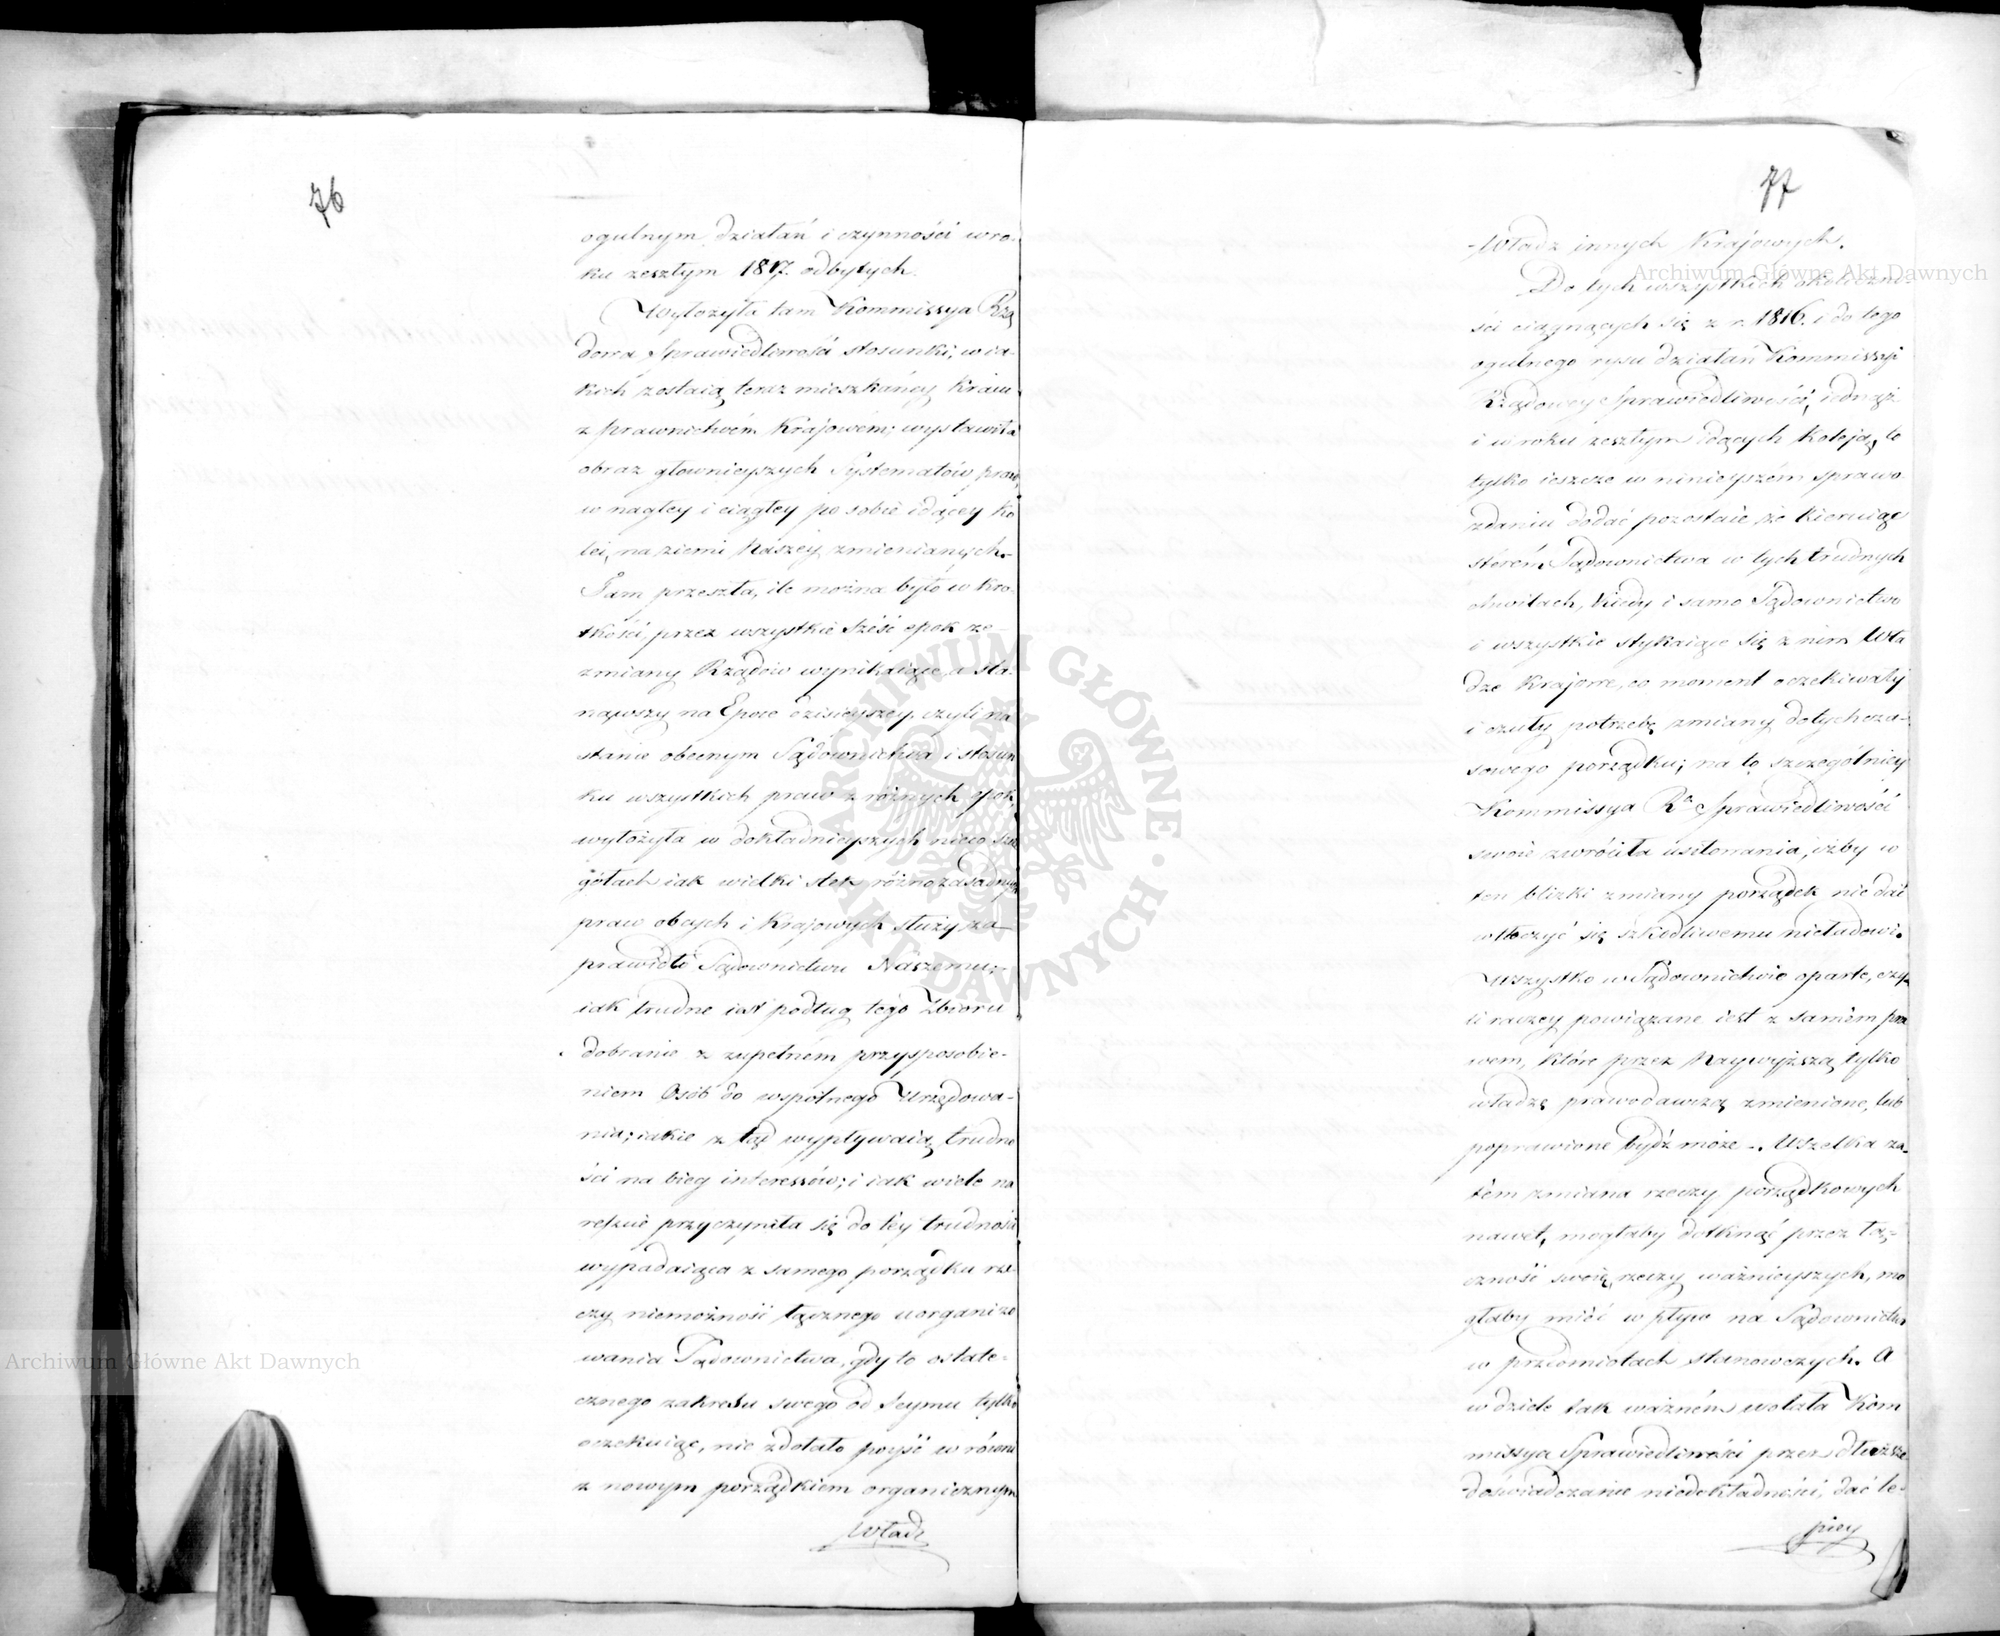 76
ogulnym działań i czynności w ro-
ku zeszłym 1817. odbytych.
Wyłożyła tam Kommissya Rzą
dowa Sprawiedliwości stosunki, w ia-
kich zostaią teraz mieszkańcy Kraiu
z prawnictwem Krajowém; wystawiła
obraz głownieyszych Systematów praw,
w nagłey i ciągłey po sobie idącey ko
lei, na ziemi Naszey zmienianych.
Tam przeszła, ile można było w kro-
tkości, przez wszystkie sześć epok ze
zmiany Rządów wynikaiące, a sta-
nąwszy na Epoce dzisieyszey, czyli na
stanie obecnym Sądownictwa i stosun
ku wszystkich praw z różnych epok,
wyłożyła w dokładnieyszych nieco szcze
gółach iak wielki stek różnozasadnych
praw obcych i Krajowych służy za
prawidło Sądownictwu Naszemu;
iak trudne iest podług tego Zbioru
dobranie z zupełném przysposobie-
niem Osób do wspólnego Urzędowa-
nia; iakie z tąd wypływaią trudno
ści na bieg interessów; i iak wiele na
reszcie przyczyniła się do tey trudności
wypadaiąca z samego porządku rze-
czy niemożność łącznego uorganizo
wania Sądownictwa, gdy to ostate-
cznego zakresu swego od Seymu tylko
oczekuiąc, nie zdołało poyść w równi
z nowym porządkiem organicznym
Władz
77
Władz innych Krajowych.
Do tych wszystkich okoliczno-
ści ciągnących się z r. 1816. i do tego
ogulnego rysu działań Kommissyi
Rządowey Sprawiedliwości, iednąż
i w roku zeszłym idących koleją, to
tylko ieszcze w ninieyszém sprawo
zdaniu dodać pozostaie że kieruiąc
sterém Sądownictwa w tych trudnych
chwilach, kiedy i samo Sądownictwo
i wszystkie stykaiące się z nim Wła
dze Krajowe, co moment oczekiwały
i czuły potrzebę zmiany dotychcza-
sowego porządku; na to szczególniey
Kommissya Rª Sprawiedliwości
swoie zwróciła usiłowania, iżby w
ten blizki zmiany porządek nie dać
wtłoczyć się szkodliwemu nieładowi.
Wszystko w Sądownictwie oparte, czy-
li raczey powiązane iest z samém pra
wem, które przez Naywyższą tylko
władzę prawodawczą zmienione, lub
poprawione bydź może. Wszelka za-
tém zmiana rzeczy porządkowych
nawet, mogłaby dotknąć przez łą-
czność swoię, rzeczy ważnieyszych, mo
głaby mieć wpływ na Sądownictwo
w przedmiotach stanowczych. A
w dziele tak ważném wolała Kom
missya Sprawiedliwości przez dłuższe
doświadczanie niedokładności, dać le-
piey
Archiwum Główne Akt Dawnych
Archiwum Główne Akt Dawnych
ARCHIWUM GŁÓWNE AKT DAWNYCH